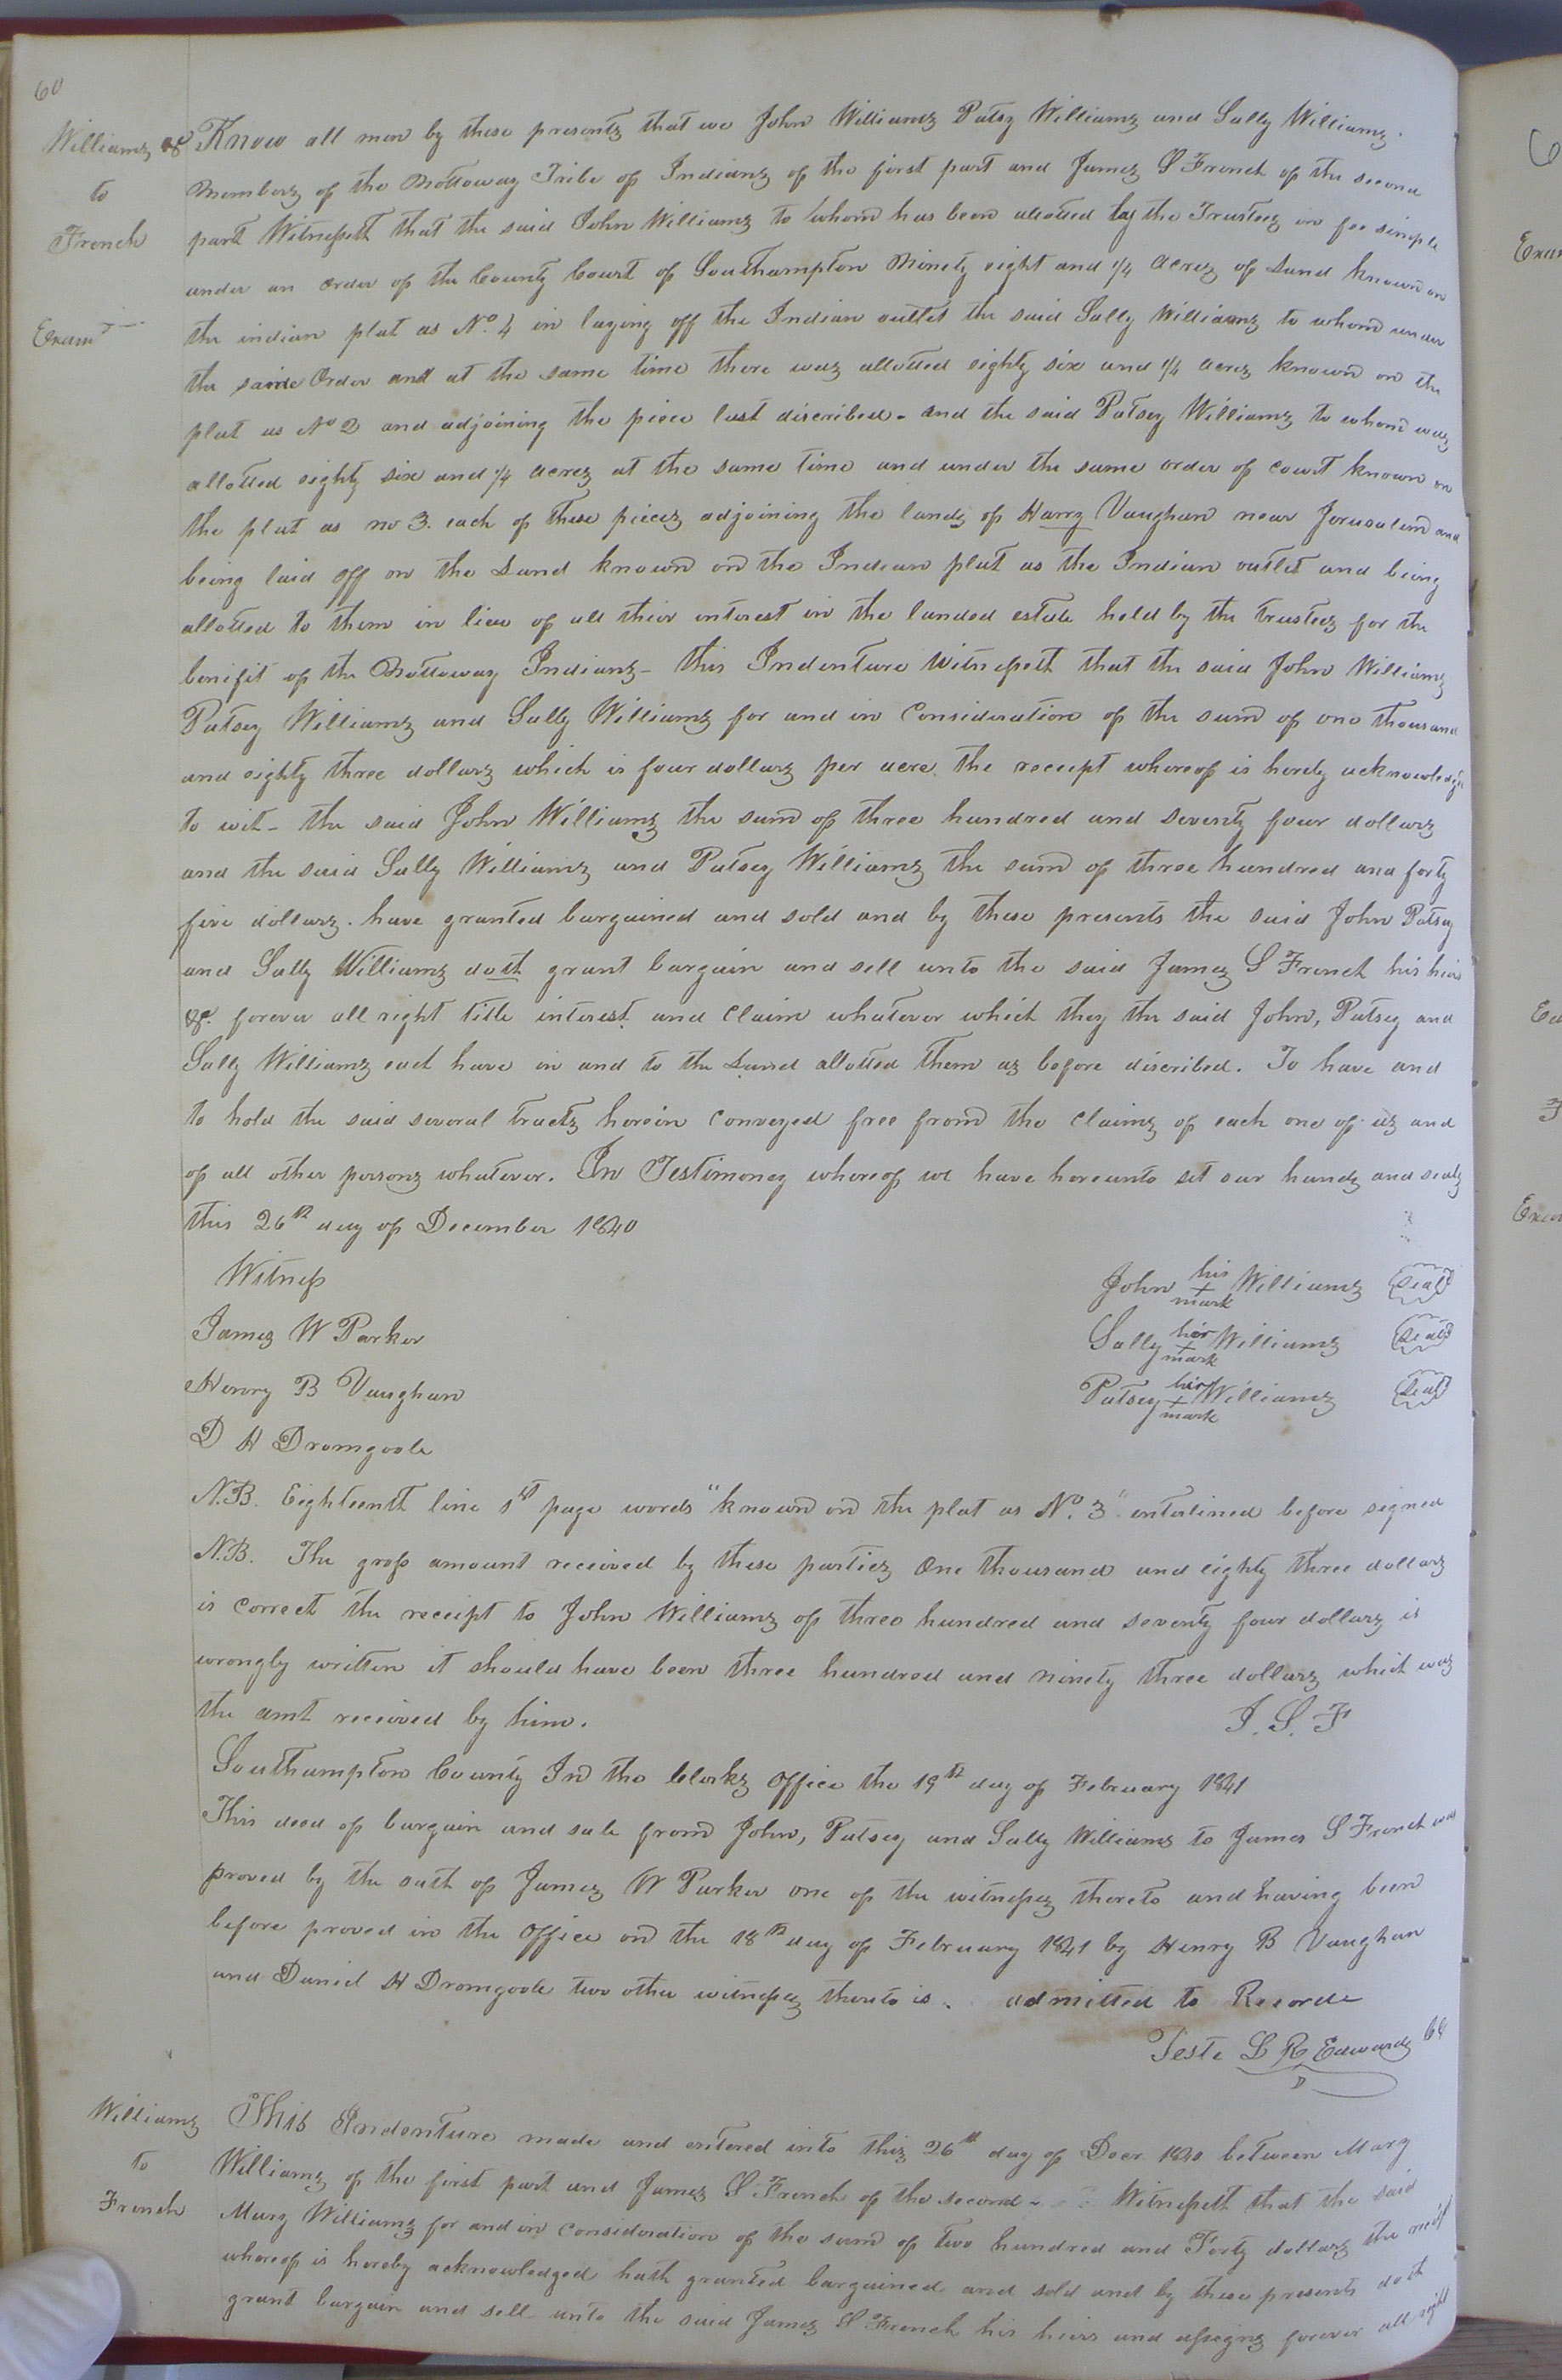 60
Williams &c
to
French
Exam<sup>d</sup>
Know all men by these presents that we John Williams Patsy Williams and Sally Williams
members of the Nottoway Tribe of Indians of the first part and James S French of the second
part Witnesseth that the said John Williams to whom has been allotted by the Trustees in fee simple
under an order of the County Court of Southampton Ninety eight and 1/4 acres of Land known on
the indian plat as No. 4 in laying off the Indian outlet the said Sally Williams to whom under
the same Order and at the same time there was allotted eighty six and 1/4 acres known on the
plat as No 2 and adjoining the piece last discribed - and the said Patsey Williams to whom was
allotted eighty six and 1/4 acres at the same time and under the same order of court known on
the plat as no 3. each of these pieces adjoining the lands of Harry Vaughan near Jerusalem and
being laid off on the Land known on the Indian plat as the Indian outlet and being
allotted to them in lieu of all their interest in the landed estate held by the trustees for the
benifit of the Nottoway Indians - this Indenture Witnesseth that the said John Williams
Patsey Williams and Sally Williams for and in Consideration of the sum of one thousand
and eighty three dollars which is four dollars per acre. the receipt whereof is herby acknowledged
to wit - the said John Williams the sum of three hundred and seventy four dollars
and the said Sally Williams and Patsey Williams the sum of three hundred and forty
five dollars. have granted bargained and sold and by these presents the said John Patsey
and Sally Williams doth grant bargain and sell unto the said James S French his heirs
&c. forever all right title interest and Claim whatever which they the said John, Patsey and
Sally Williams each have in and to the Land allotted them as before discribed. To have and
to hold the said several tracts herein Conveyed free from the Claims of each one of us and
of all other persons whatever. In Testimoney whereof we have hereunto set our hands and seals
this 26th day of December 1840
Witness
James W Parker
Henry B Vaughan
D H Dromgoole
John his + mark Williams Seal
Sally her + mark Williams Seal
Patsey her + mark Williams Seal
N.B. Eighteenth line 1st page words "known on the plat as No. 3" interlined before signed
N.B. The gross amount received by these parties One thousand and eighty three dollars
is correct the receipt to John Williams of three hundred and seventy four dollars is
wrongly written it should have been three hundred and ninety three dollars which was
the amt received by him. J. S. F
Southampton County In the Clerks Office the 19th day of February 1841
This deed of bargain and sale from John, Patsey and Sally Williams to James S French was
proved by the oath of James W Parker one of the witnesses thereto and having been
before proved in the Office on the 18th day of February 1841 by Henry B Vaughan
and Daniel H Dromgoole two other witnesses thereto is. admitted to Recorde
Teste L R Edwards Clk
Williams
to
French
This Indenture made and entered into this 26th day of Decr 1840 between Mary
Williams of the first part and James S French of the second - Witnesseth that the said
Mary Williams for and in Consideration of the sum of two hundred and Forty dollars the rec't
whereof is hereby acknowledged hath granted bargained and sold and by these presents doth
grant bargain and sell unto the said James S French his heirs and assigns forever all right